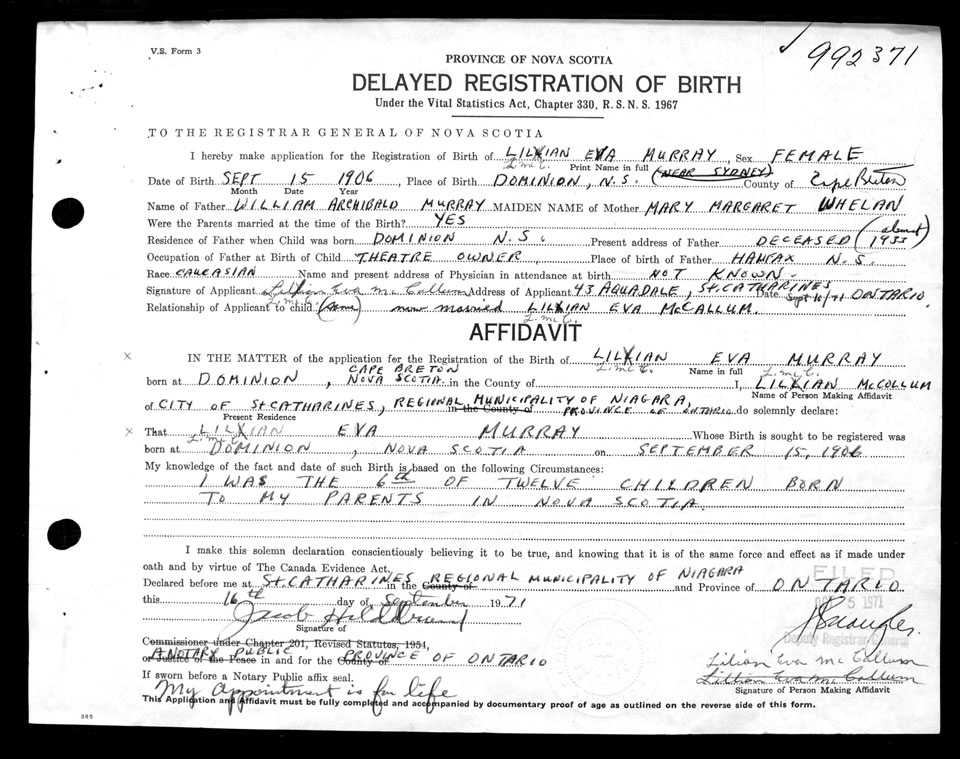 V.S. Form 3
992371
PROVINCE OF NOVA SCOTIA
DELAYED REGISTRATION OF BIRTH
Under the Vital Statistics Act, Chapter 330, R. S. N. S. 1967
TO THE REGISTRAR GENERAL OF NOVA SCOTIA
I hereby make application for the Registration of Birth of LILLIAN EVA MURRAY, Sex FEMALE
L. McC. Print Name in full (NEAR SYDNEY)
Date of Birth SEPT 15 1906, Place of Birth DOMINION, N.S. County of Cape Breton
Month Date Year
Name of Father WILLIAM ARCHIBALD MURRAY MAIDEN NAME of Mother MARY MARGARET WHELAN
Were the Parents married at the time of the Birth? YES
Residence of Father when Child was born DOMINION N.S. Present address of Father DECEASED (about 1933)
Occupation of Father at Birth of Child THEATRE OWNER, Place of birth of Father HALIFAX N.S.
Race CAUCASIAN Name and present address of Physician in attendance at birth NOT KNOWN.
Signature of Applicant Lillian Eva McCallum Address of Applicant 43 AQUADALE, St. CATHARINES Date Sept 16/71 ONTARIO.
L. McC.
Relationship of Applicant to child (same) now married LILLIAN EVA McCALLUM.
L. McC.
AFFIDAVIT
x IN THE MATTER of the application for the Registration of the Birth of LILLIAN EVA MURRAY
L. McC. Name in full L. McC.
born at DOMINION, CAPE BRETON NOVA SCOTIA in the County of I, LILLIAN McCOLLUM
Name of Person Making Affidavit
of CITY OF St. CATHARINES, REGIONAL MUNICIPALITY OF NIAGARA, in the County of PROVINCE OF ONTARIO do solemnly declare:
Present Residence
x That LILLIAN EVA MURRAY Whose Birth is sought to be registered was
L. McC.
born at DOMINION, NOVA SCOTIA on SEPTEMBER 15, 1906
My knowledge of the fact and date of such Birth is based on the following Circumstances:
I WAS THE 6th OF TWELVE CHILDREN BORN
TO MY PARENTS IN NOVA SCOTIA.
I make this solemn declaration conscientiously believing it to be true, and knowing that it is of the same force and effect as if made under
oath and by virtue of The Canada Evidence Act.
Declared before me at St. CATHARINES in the County of REGIONAL MUNICIPALITY OF NIAGARA and Province of ONTARIO
FILED
5 1971
this 16th day of September 1971
Jacob
Signature of
Deputy Registrar General
Commissioner under Chapter 201, Revised Statutes, 1954,
A NOTARY PUBLIC
or Justice of the Peace in and for the County of PROVINCE OF ONTARIO
Lilian Eva McCallum
If sworn before a Notary Public affix seal.
Lillian Eva McCallum
My appointment is for life
Signature of Person Making Affidavit
This Application and Affidavit must be fully completed and accompanied by documentary proof of age as outlined on the reverse side of this form.
385